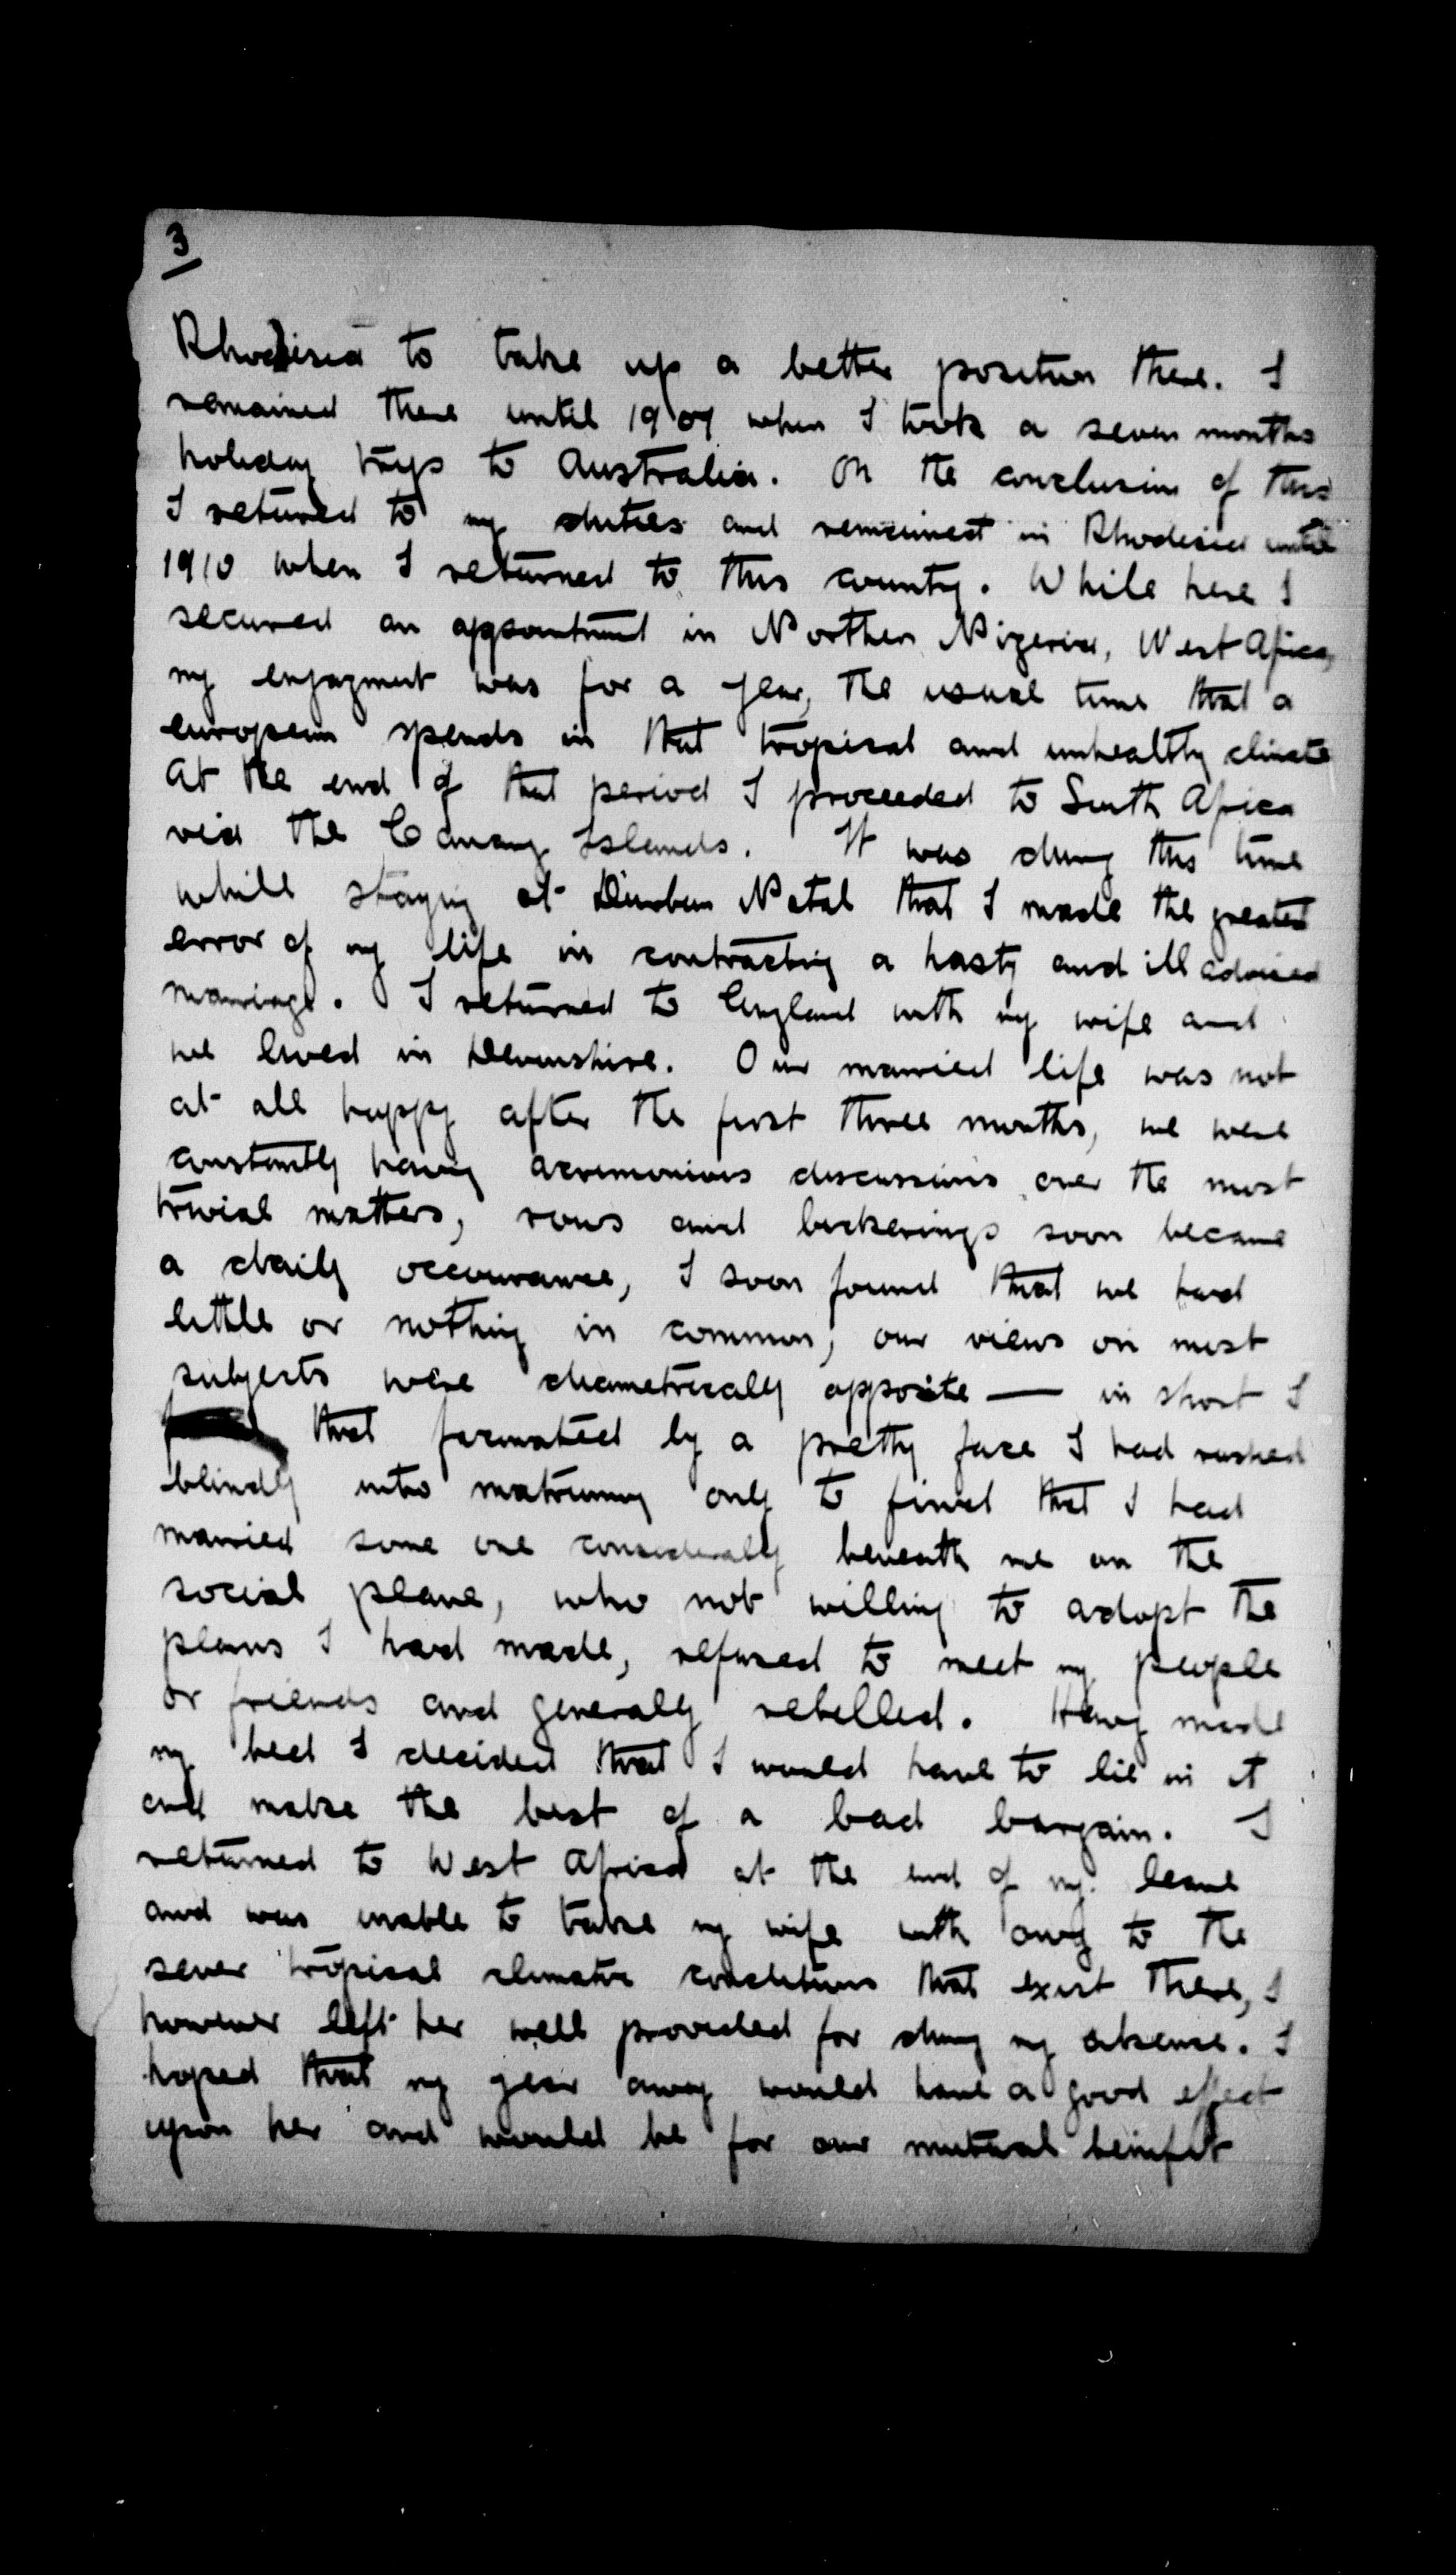 3
Rhodisia to take up a better position there. I
remained there until 1907 when I took a seven months
holiday trip to Australia. On the conclusion of this
I returned to my duties and remained in Rhodesia until
1910 when I returned to this country. While here I
secured an appointment in Northern Nigeria, West Africa,
my engagment was for a year, the usual time that a
european spends in that tropical and unhealthy climate
At the end of that period I proceeded to South Africa
via the Canary Islands. It was during this time
while staying at Durban Natal that I made the greatest
error of my life in contracting a hasty and ill advised
marriage. I returned to England with my wife and
we lived in Devonshire. Our married life was not
at all happy after the first three months, we were
constantly having acremonious discussions over the most
trivial matters, rows and bickerings soon became
a daily occourance, I soon found that we had
little or nothing in common, our views on most
subjects were diametrically opposite — in short I
that facinated by a pretty face I had rushed
blindly into matrimony only to find that I had
married some one considerably beneath me on the
social plane, who not willing to adopt the
plans I had made, refused to meet my people
or friends and generally rebelled. Having made
my bed I decided that I would have to lie in it
and make the best of a bad bargain. I
returned to West Africa at the end of my leave
and was unable to take my wife with owing to the
sever tropical climatic conditions that exist there, I
however left her well provided for during my absence. I
hoped that my year away would have a good effect
upon her and would be for our mutual benifit